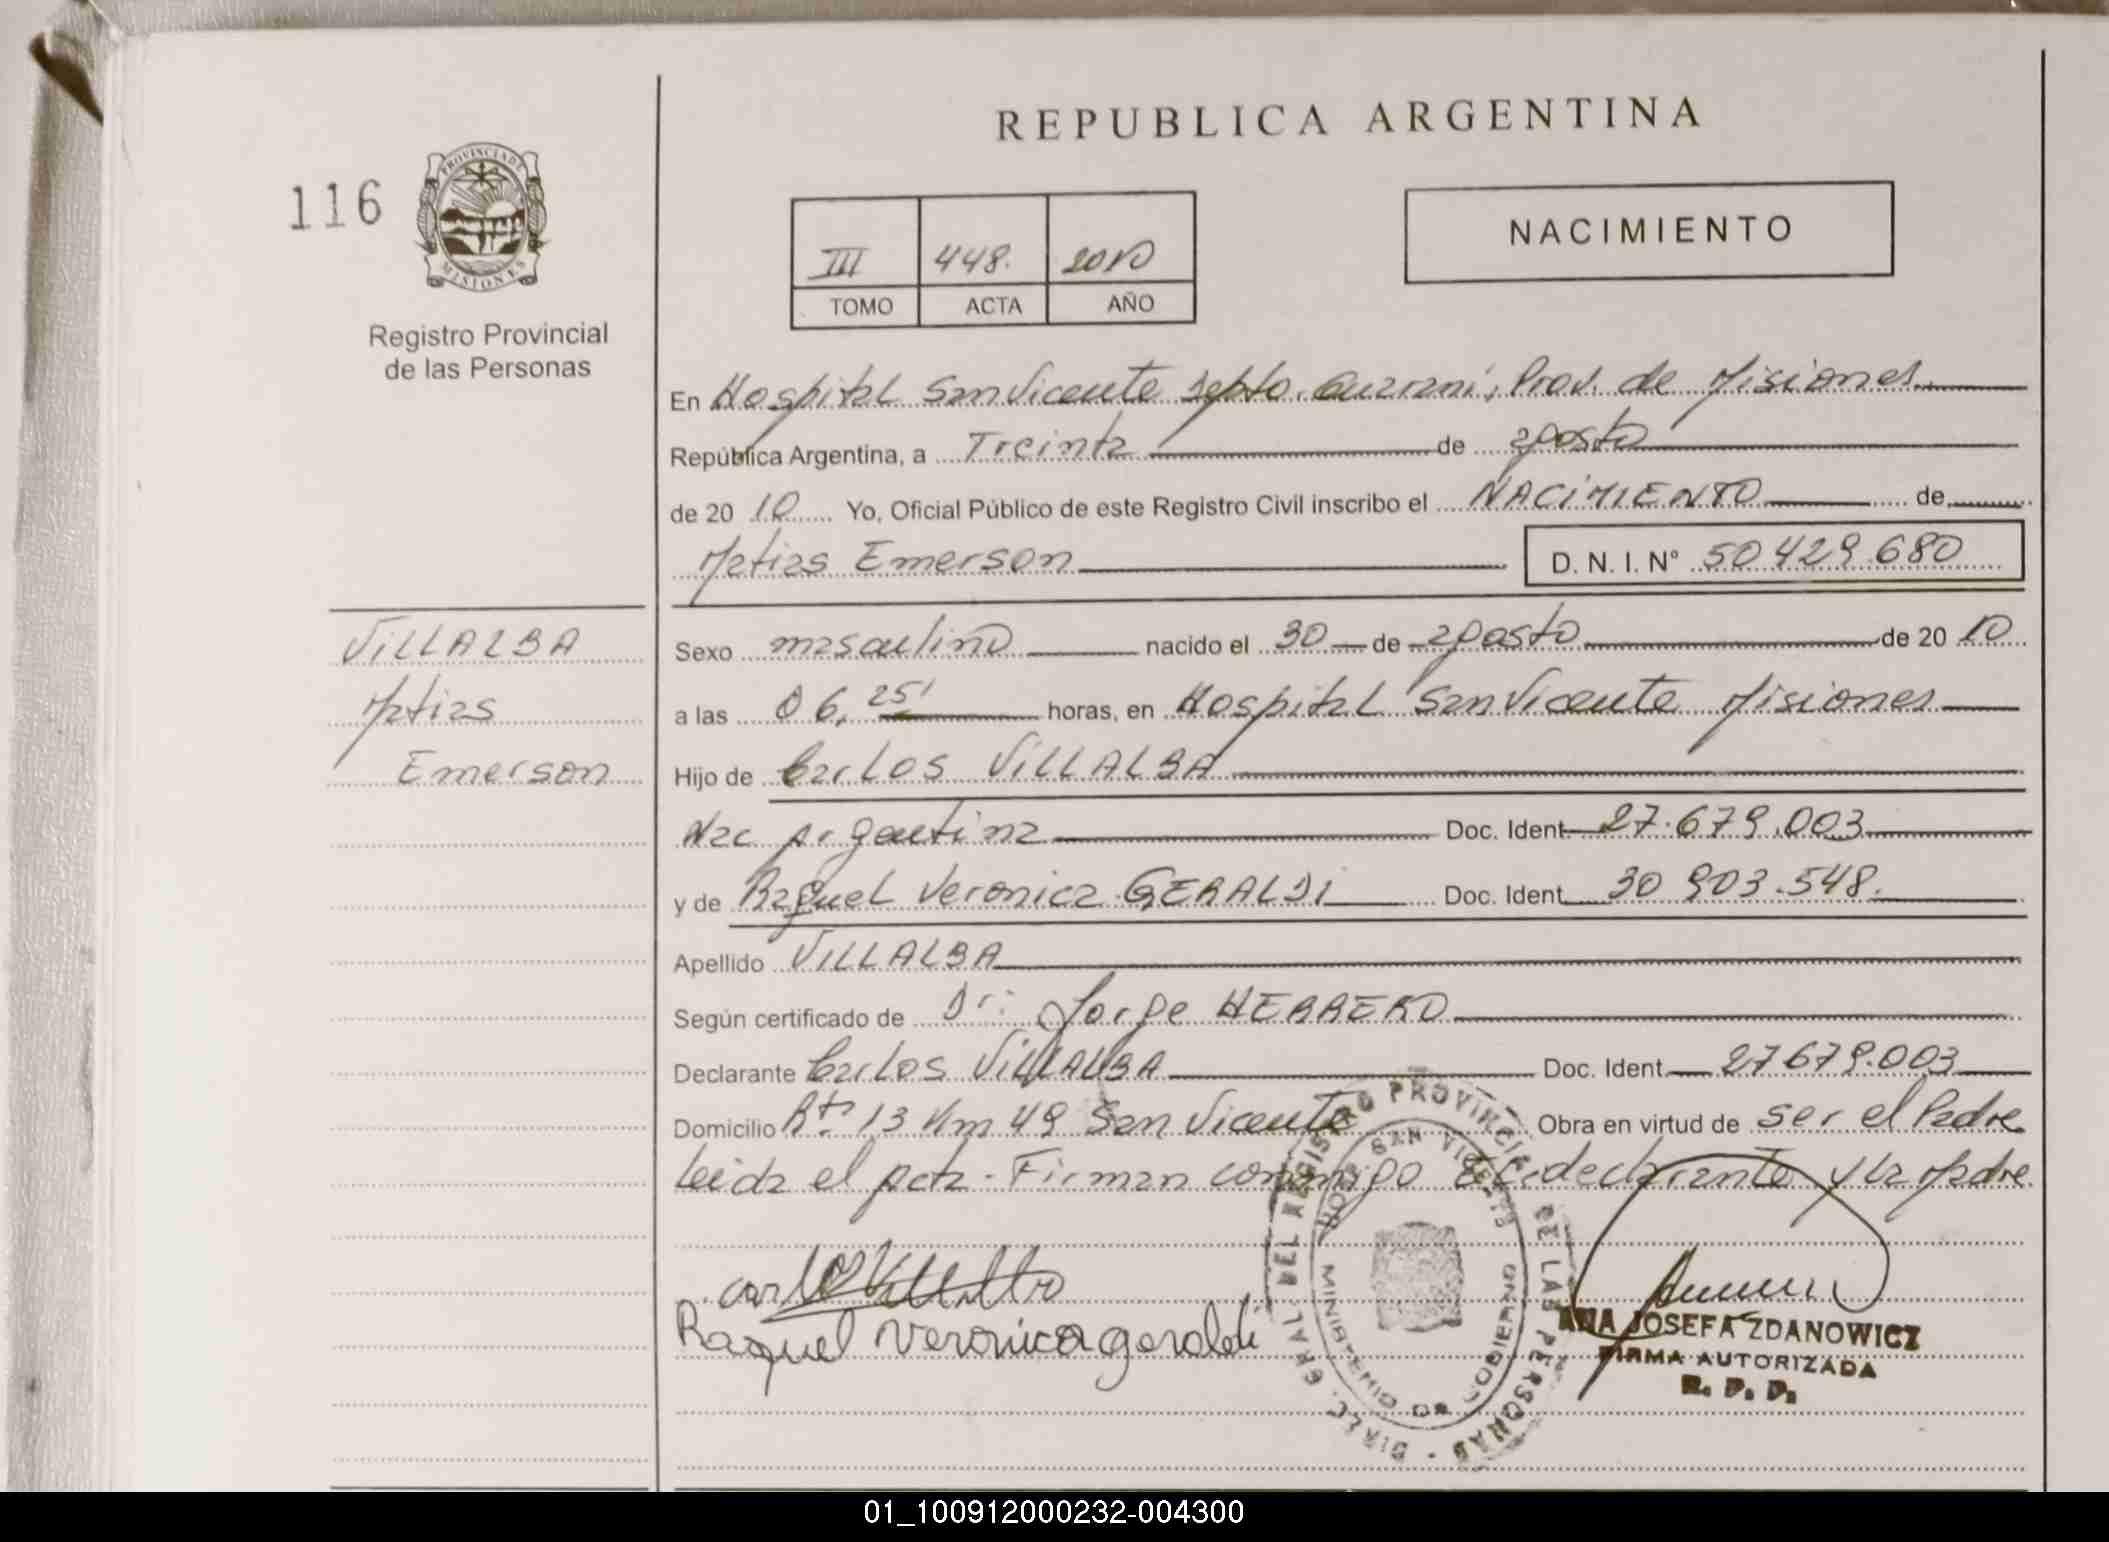 REPUBLICA ARGENTINA
116
PROVINCIA DE
MISIONES
Registro Provincial
de las Personas
III 448. 2010
TOMO ACTA AÑO
NACIMIENTO
En Hospital San Vicente Depto. Guaraní, Prov. de Misiones
República Argentina, a Treinta de agosto
de 20 10 Yo, Oficial Público de este Registro Civil inscribo el NACIMIENTO de
Matias Emerson D. N. I. N° 50 429.680
VILLALBA
Matias
Emerson
Sexo masculino nacido el 30 de agosto de 20 10
a las 06, 25' horas, en Hospital San Vicente Misiones
Hijo de Carlos VILLALBA
Nac Argentina Doc. Ident 27.679.003
y de Raquel Veronica GERALDI Doc. Ident 30 903.548.
Apellido VILLALBA
Según certificado de Dr: Jorge HERRERO
Declarante Carlos VILLALBA Doc. Ident 27679.003
Domicilio Rta 13 Km 49 San Vicente Obra en virtud de ser el Padre
Leida el Acta. Firman conmigo el declarante y la Madre
Raquel Veronica geraldi
DIREC. GRAL. DEL REGISTRO PROVINCIAL DE LAS PERSONAS
HOSP SAN VICENTE
MINISTERIO DE GOBIERNO
ANA JOSEFA ZDANOWICZ
FIRMA AUTORIZADA
R. P. P.
01_100912000232-004300